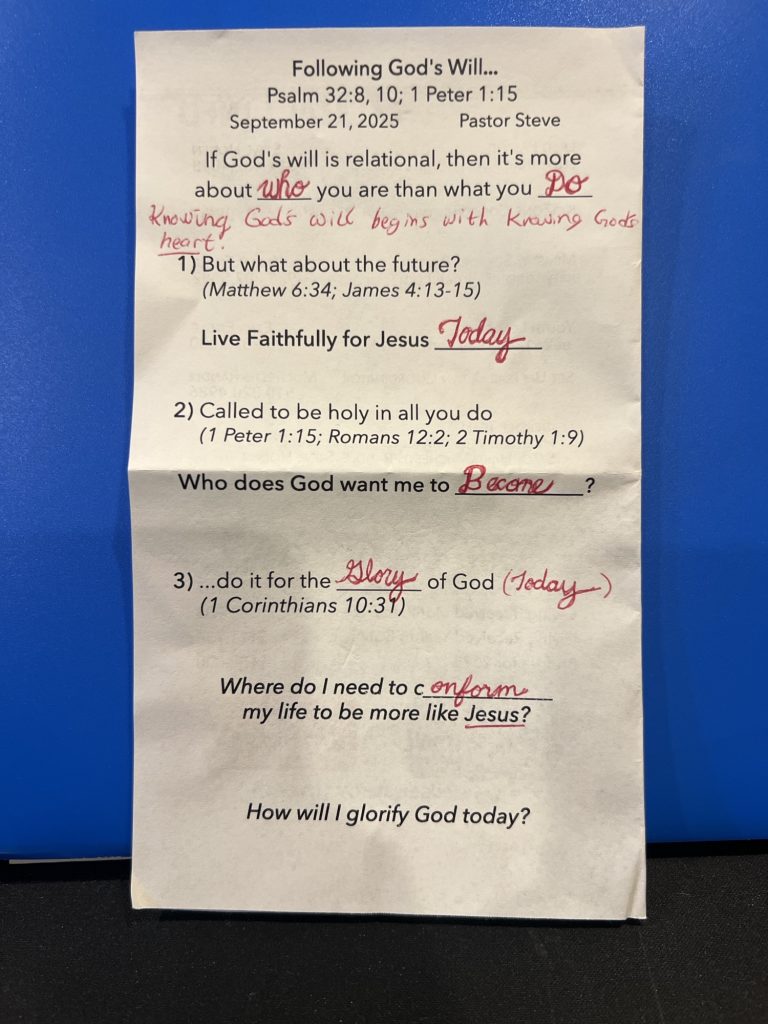 Following God's Will...
Psalm 32:8, 10; 1 Peter 1:15
September 21, 2025 Pastor Steve
If God's will is relational, then it's more
about who you are than what you Do
Knowing God's will begins with Knowing God's
heart.
1) But what about the future?
(Matthew 6:34; James 4:13-15)
Live Faithfully for Jesus Today
2) Called to be holy in all you do
(1 Peter 1:15; Romans 12:2; 2 Timothy 1:9)
Who does God want me to Become ?
3) ...do it for the Glory of God (Today)
(1 Corinthians 10:31)
Where do I need to conform
my life to be more like Jesus?
How will I glorify God today?